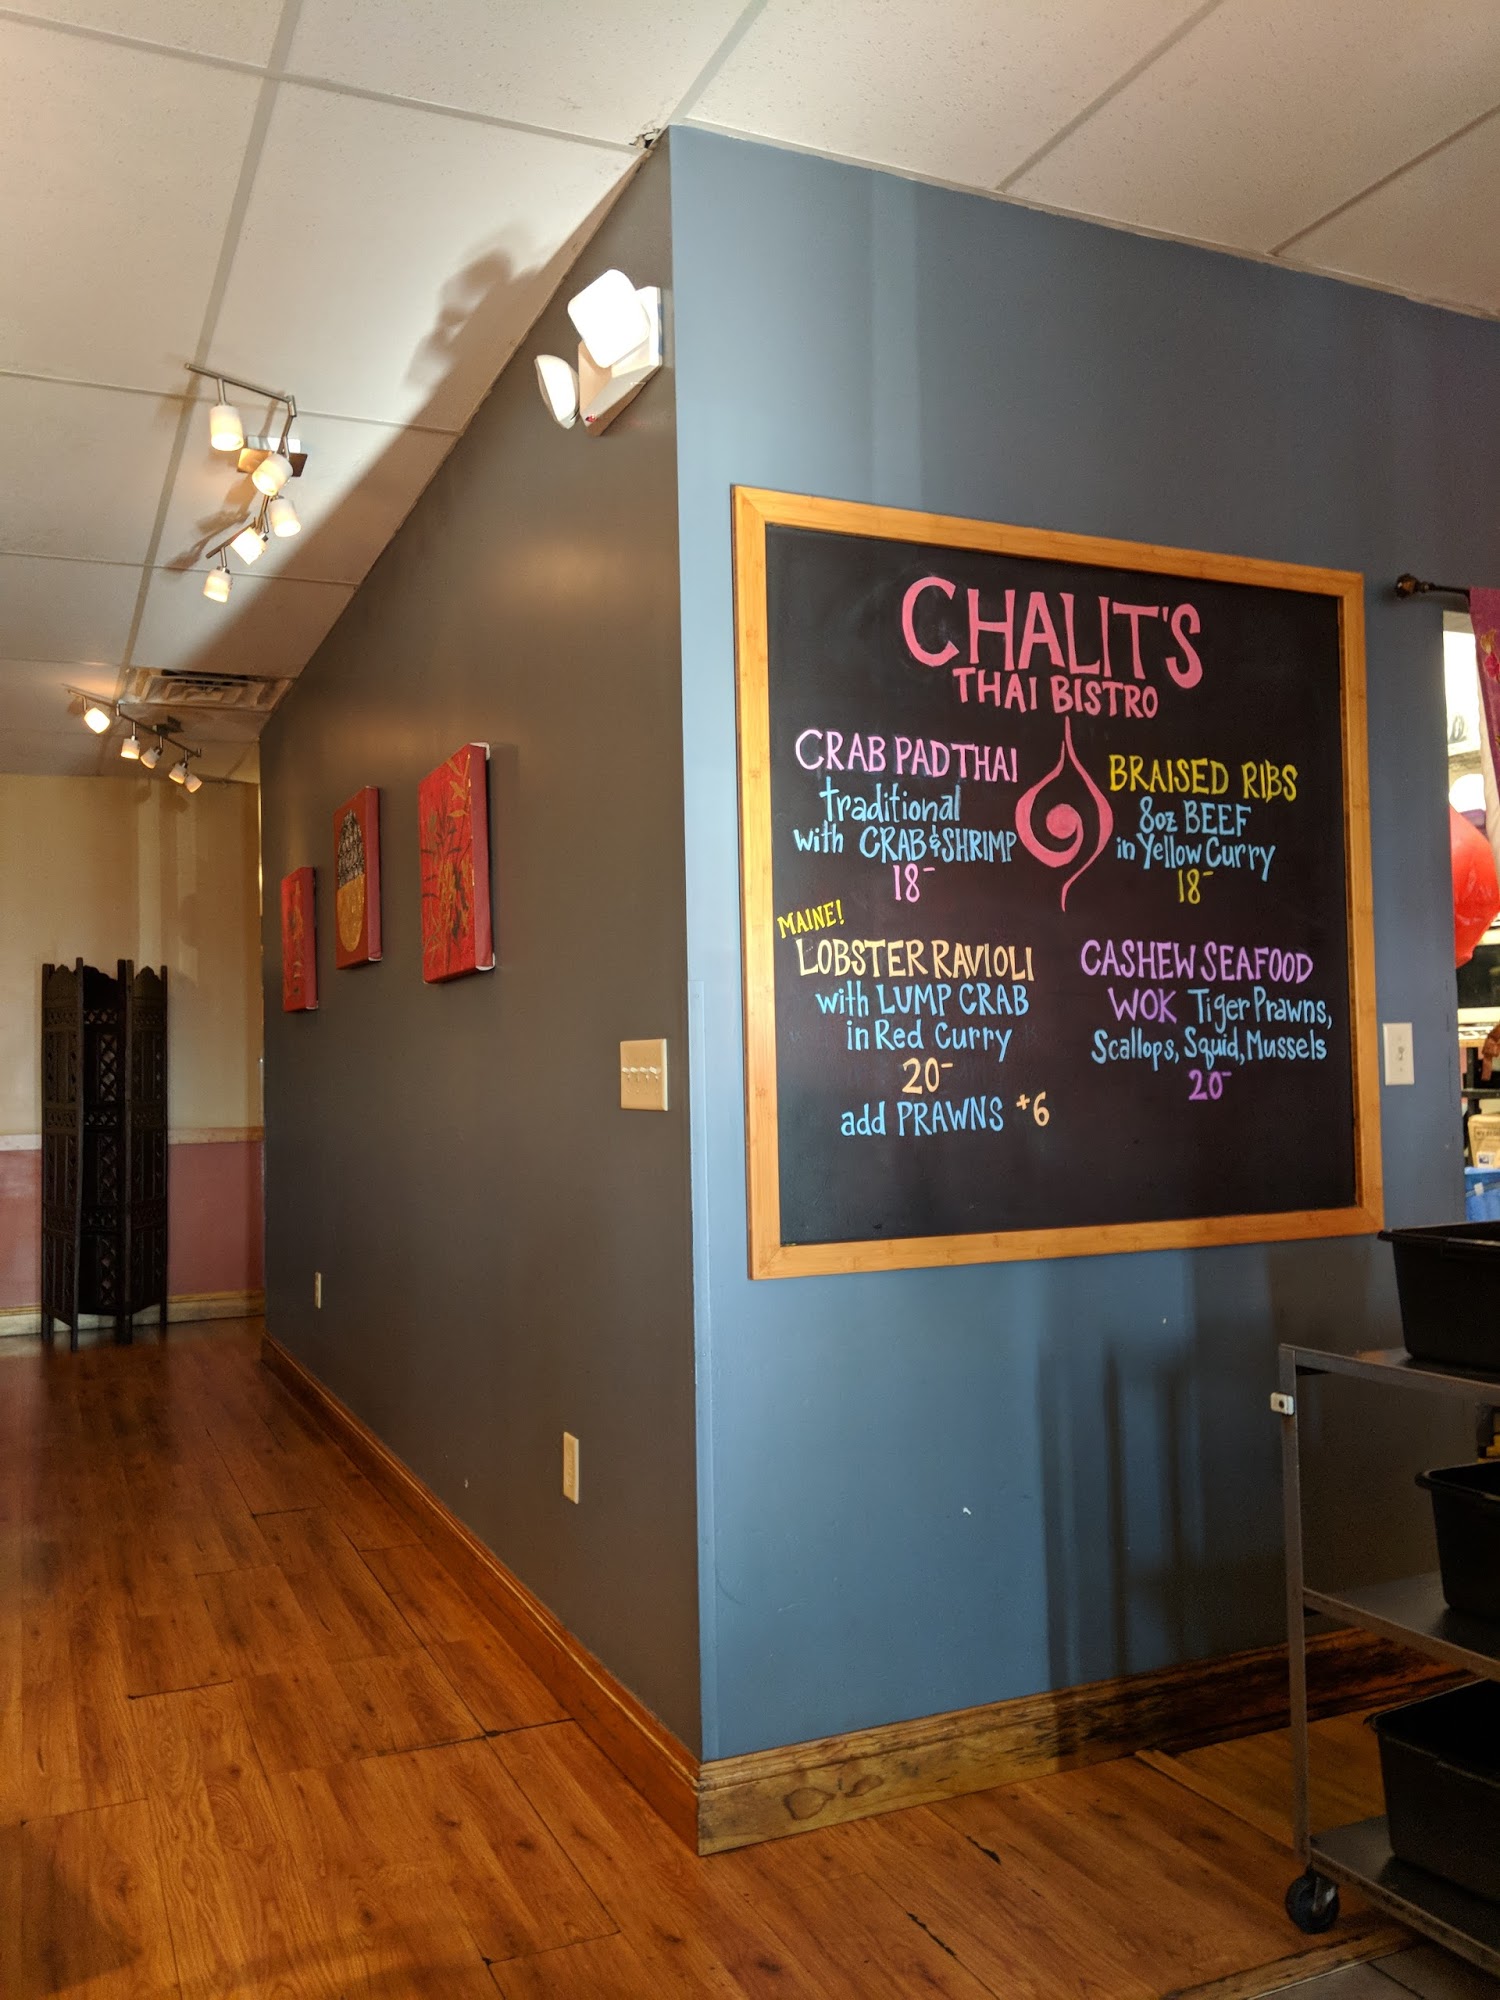 CHALIT'S
THAI BISTRO
CRAB PAD THAI
traditional
with CRAB & SHRIMP
18-
BRAISED RIBS
8oz BEEF
in Yellow Curry
18-
MAINE!
LOBSTER RAVIOLI
with LUMP CRAB
in Red Curry
20-
add PRAWNS +6
CASHEW SEAFOOD
WOK Tiger Prawns,
Scallops, Squid, Mussels
20-